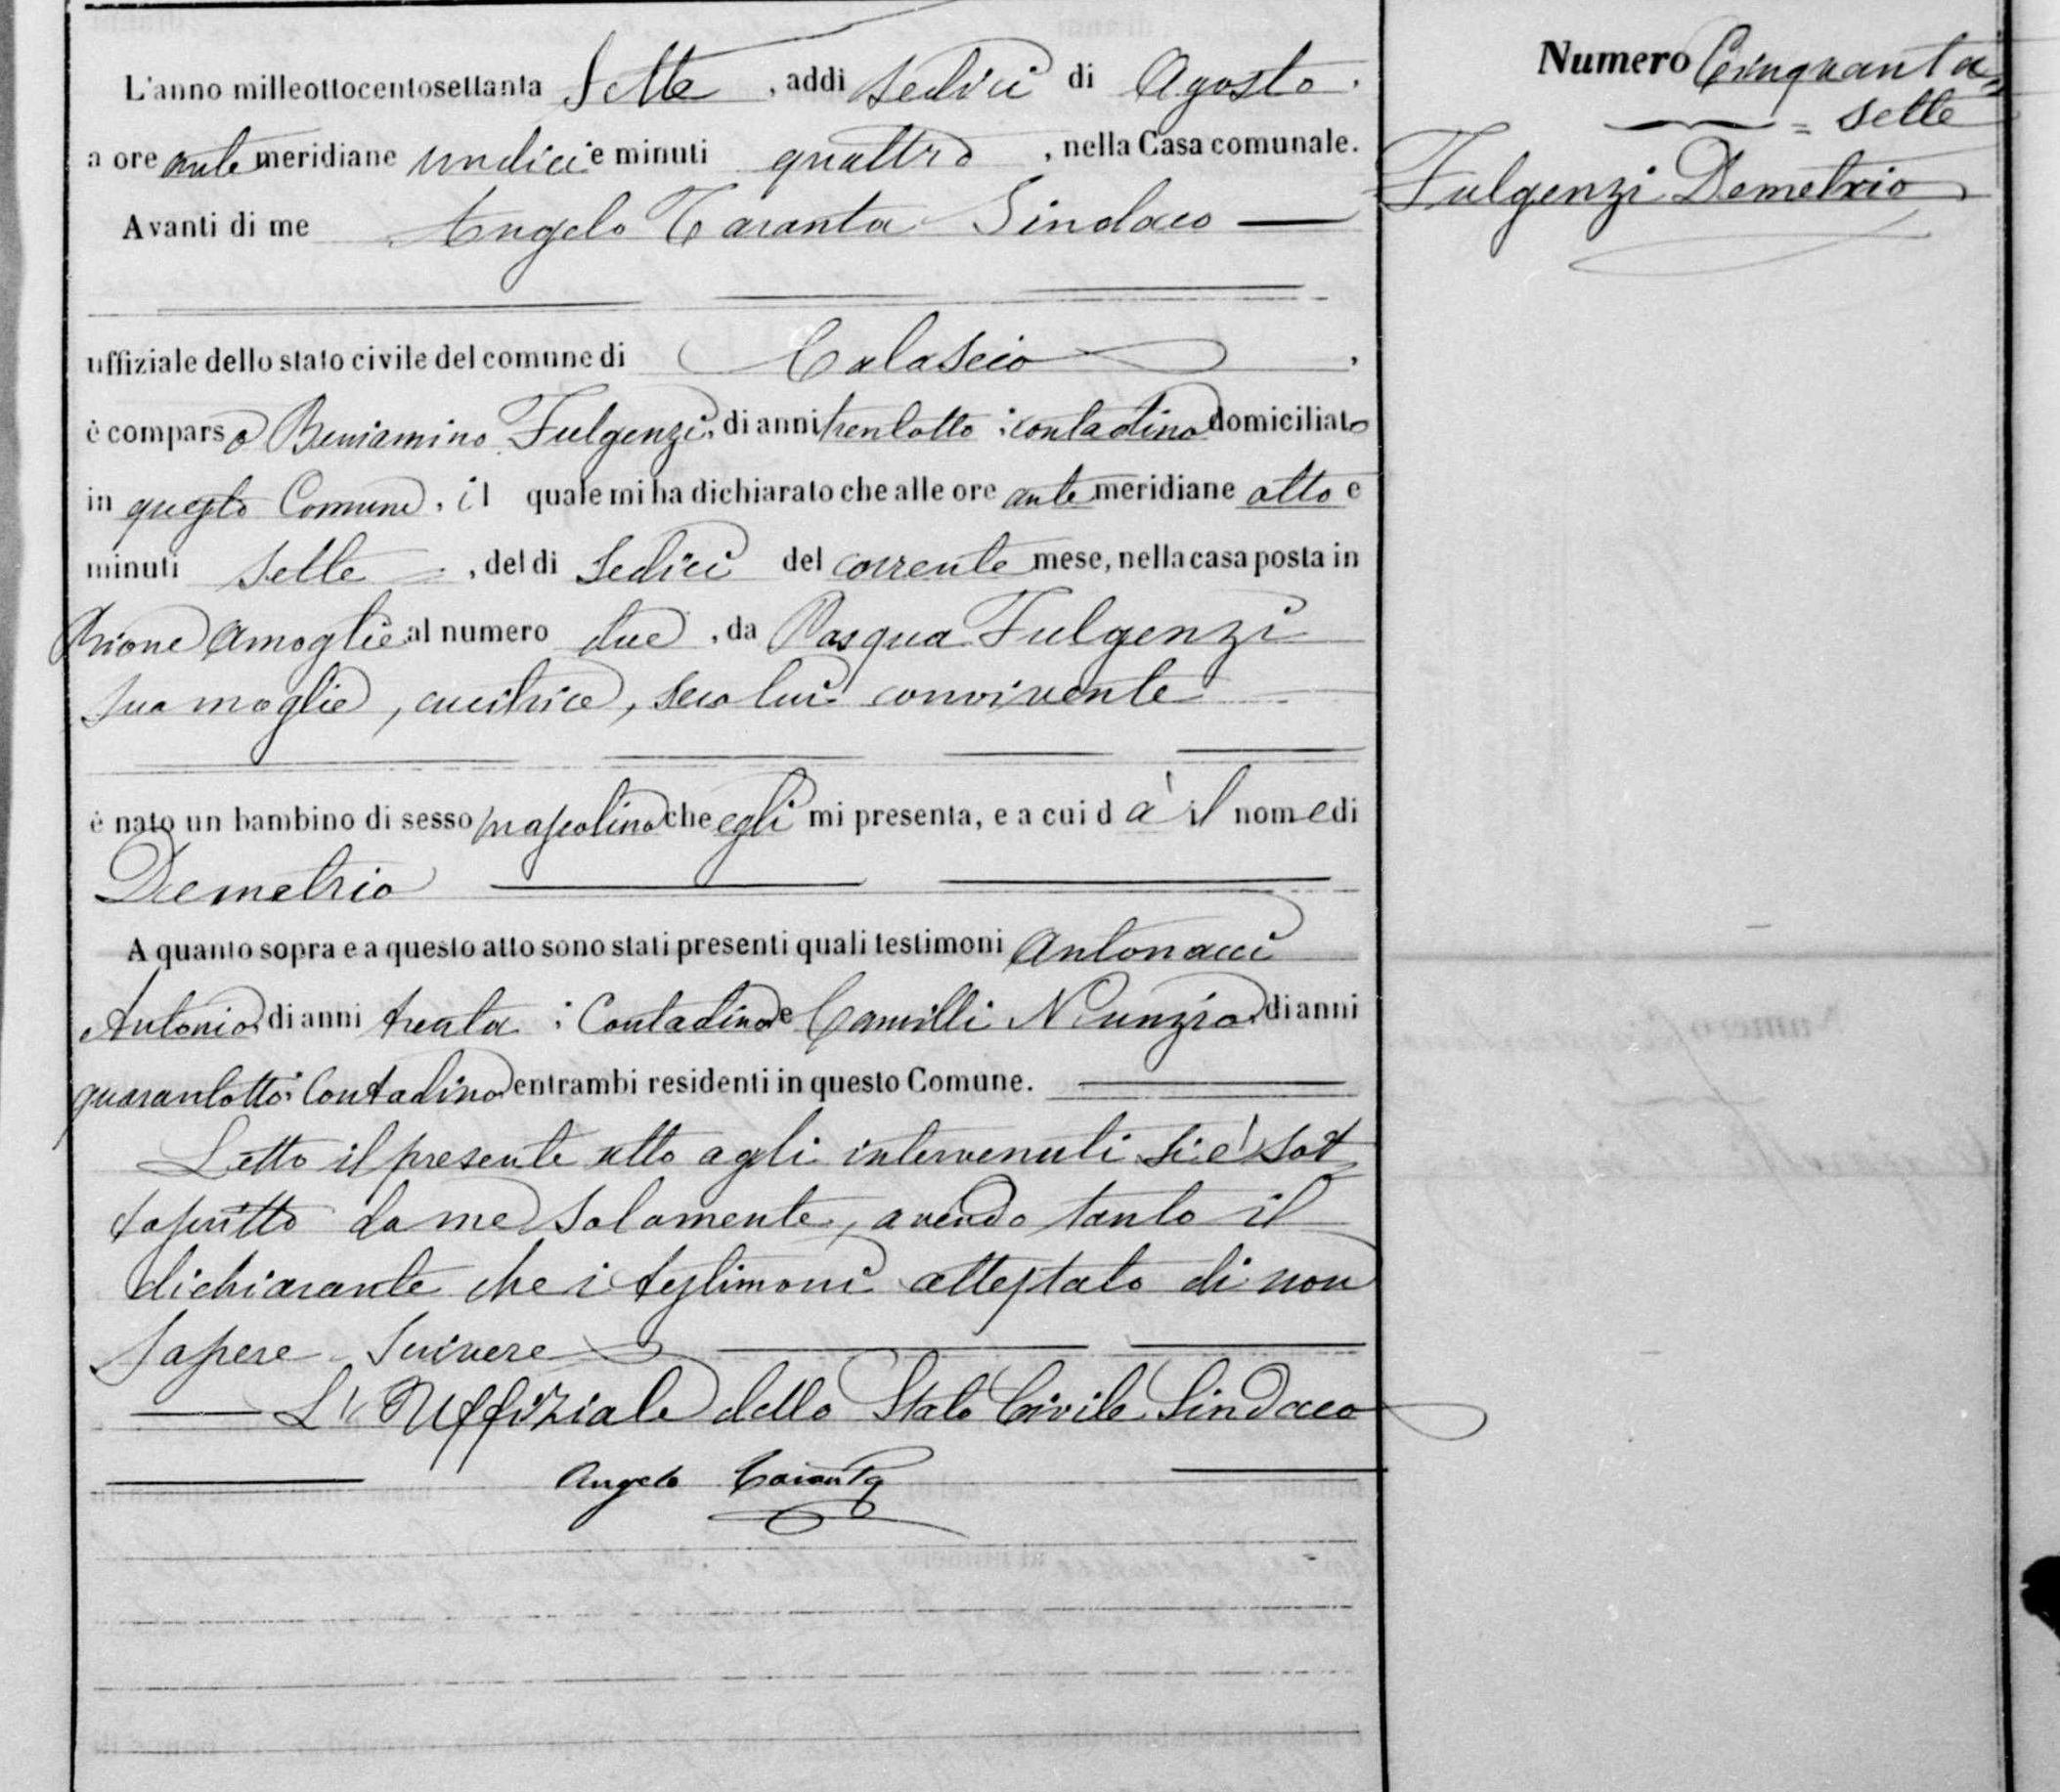 L'anno milleottocentosettanta sette, addì sedici di Agosto.
a ore antemeridiane undici e minuti quattro, nella Casa comunale.
Avanti di me Angelo Taranta Sindaco
uffiziale dello stato civile del comune di Calascio,
è comparso Beniamino Fulgenzi, di anni trentotto, contadino domiciliato
in questo Comune, il quale mi ha dichiarato che alle ore antemeridiane otto e
minuti sette =, del dì sedici del corrente mese, nella casa posta in
Rione Amoglie al numero due, da Pasqua Fulgenzi
sua moglie, cucitrice, seco lui convivente
è nato un bambino di sesso mascolino che egli mi presenta, e a cui dà il nome di
Demetrio
A quanto sopra e a questo atto sono stati presenti quali testimoni Antonacci
Antonio, di anni trenta, Contadino e Camilli Nunzio, di anni
quarantotto, Contadino entrambi residenti in questo Comune.
Letto il presente atto agli intervenuti si è sot=
toscritto da me solamente, avendo tanto il
dichiarante che i testimoni attestato di non
sapere scrivere
L'Uffiziale dello Stato Civile Sindaco
Angelo Taranta
Numero Cinquanta=
= sette
Fulgenzi Demetrio